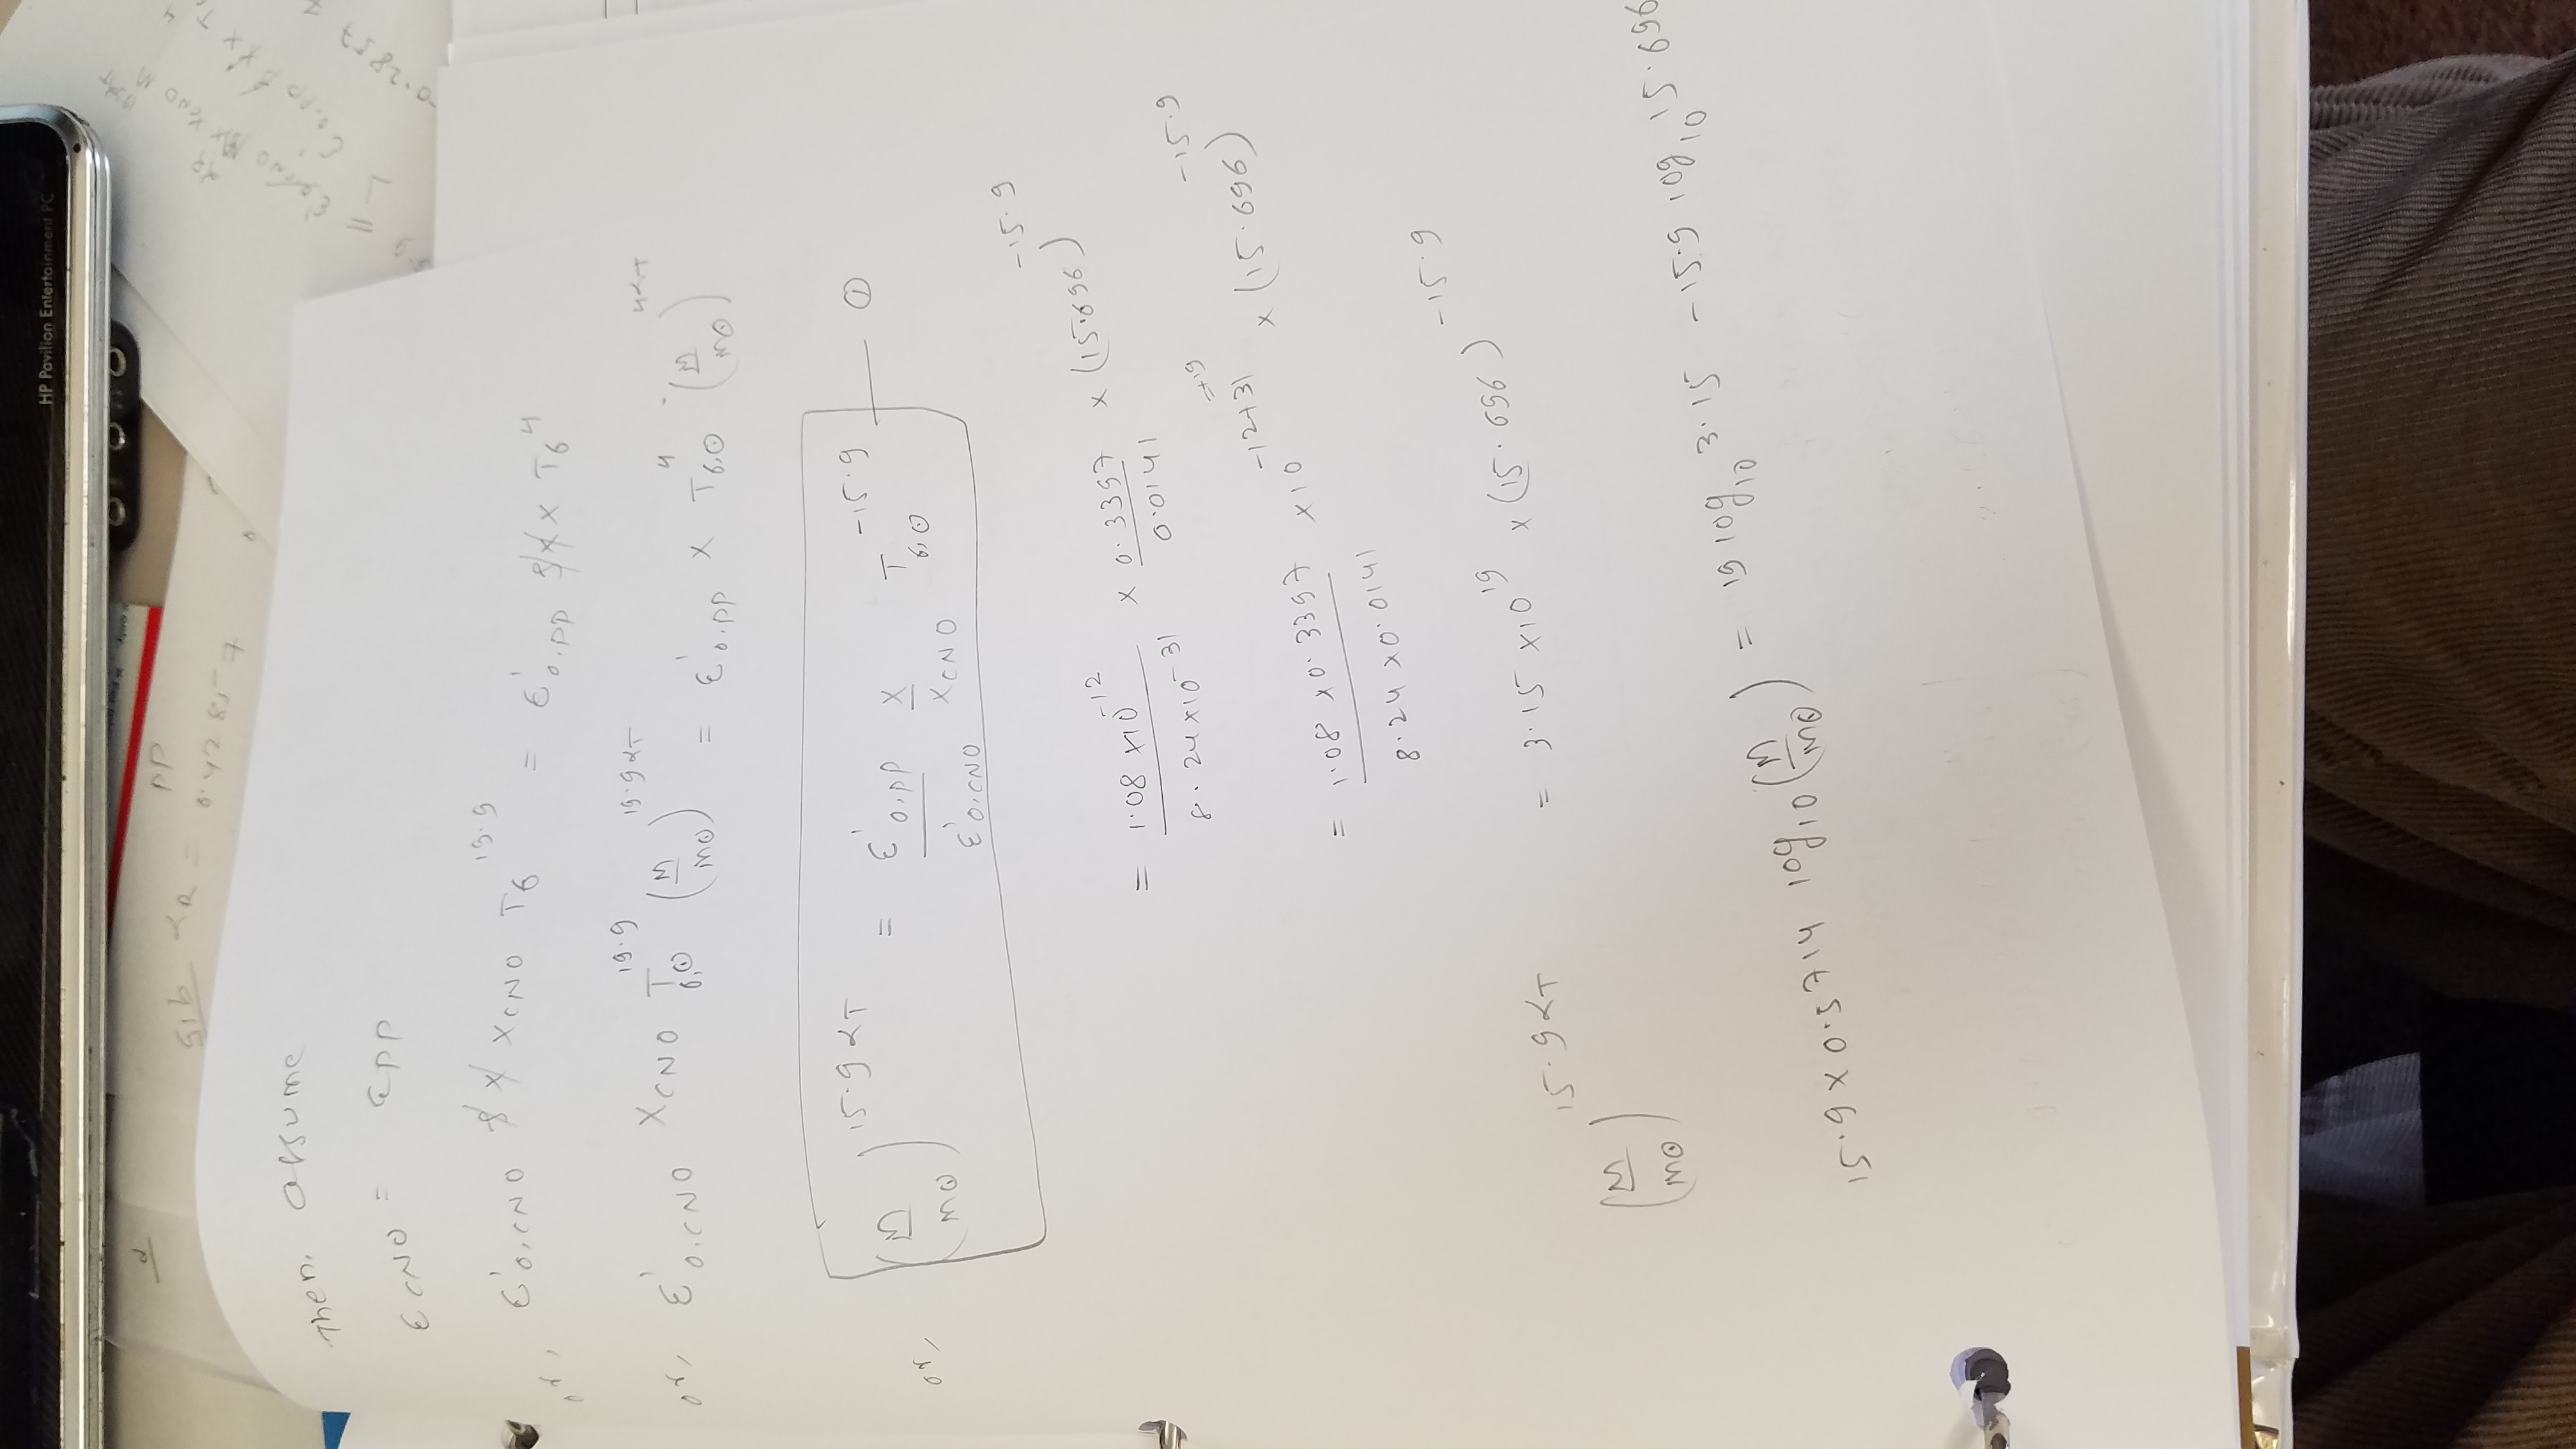 HP Pavilion Entertainment PC
d
PP
5.b αR = 0.42857
Then, assume
ϵCNO = ϵPP
or, ϵ'0,CNO ρ X XCNO T6^19.9 = ϵ'0,PP ρ X X T6^4
or, ϵ'0,CNO XCNO T6,⊙^19.9 (M/M⊙)^19.9αT = ϵ'0,PP X T6,⊙^4 (M/M⊙)^4αT
or, (M/M⊙)^15.9αT = ϵ'0,PP/ϵ'0,CNO X/XCNO T6,⊙^-15.9 — ①
= 1.08 × 10^-12 / 8.24 × 10^-31 × 0.3397/0.0141 × (15.696)^-15.9
= 1.08 × 0.3397 / 8.24 × 0.0141 × 10^-12+31 =+19 × (15.696)^-15.9
(M/M⊙)^15.9αT = 3.15 × 10^19 × (15.696)^-15.9
15.9 × 0.5714 log10 (M/M⊙) = 19 log10 3.15 - 15.9 log10 15.696